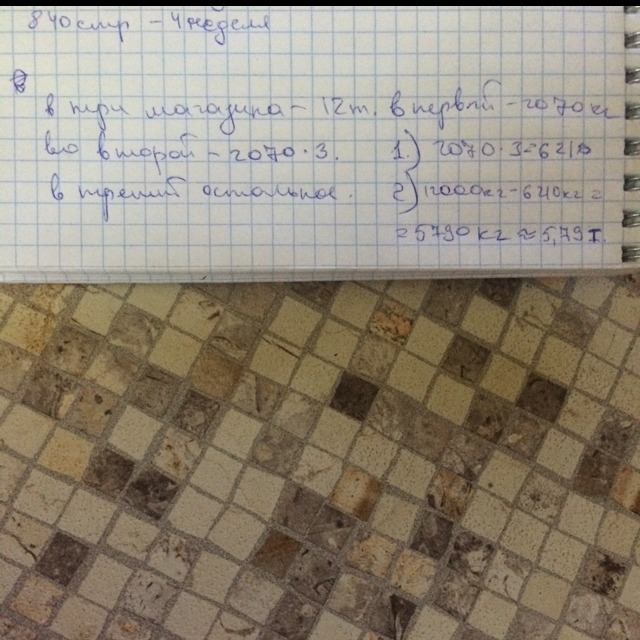 840стр - 4 недели
в три магазина - 12т. в первый - 2070 кг
во второй - 2070·3. 1) 2070·3=6210
в третий остальное. 2) 12000кг-6210кг=
=5790кг≈5,79т